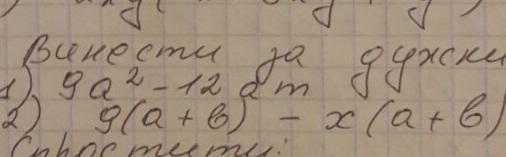 Винести за дужки
1) 9a² - 12am
2) 9(a + b) - x(a + b)
Спростити: